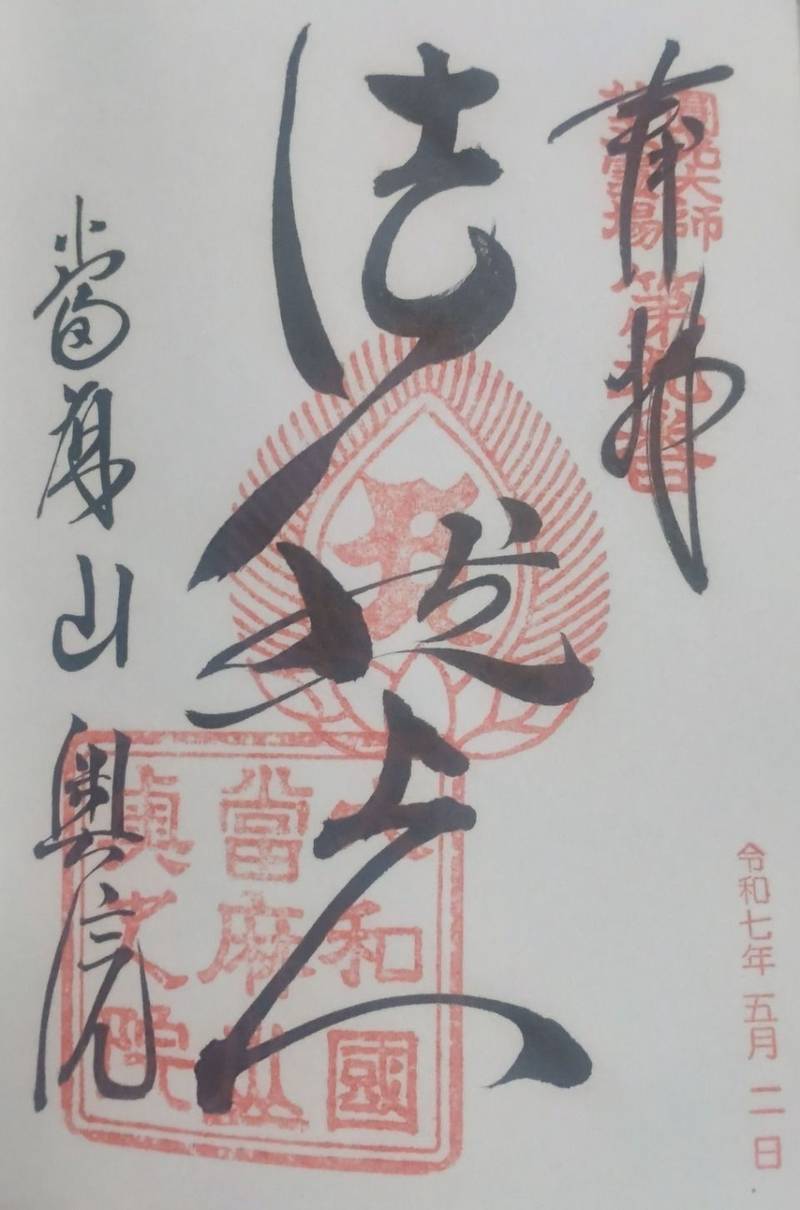 奉拝
圓光大師
霊場
第九番
法然上人
當麻山 奥院
大和國
當麻山
令和七年 五月 二日